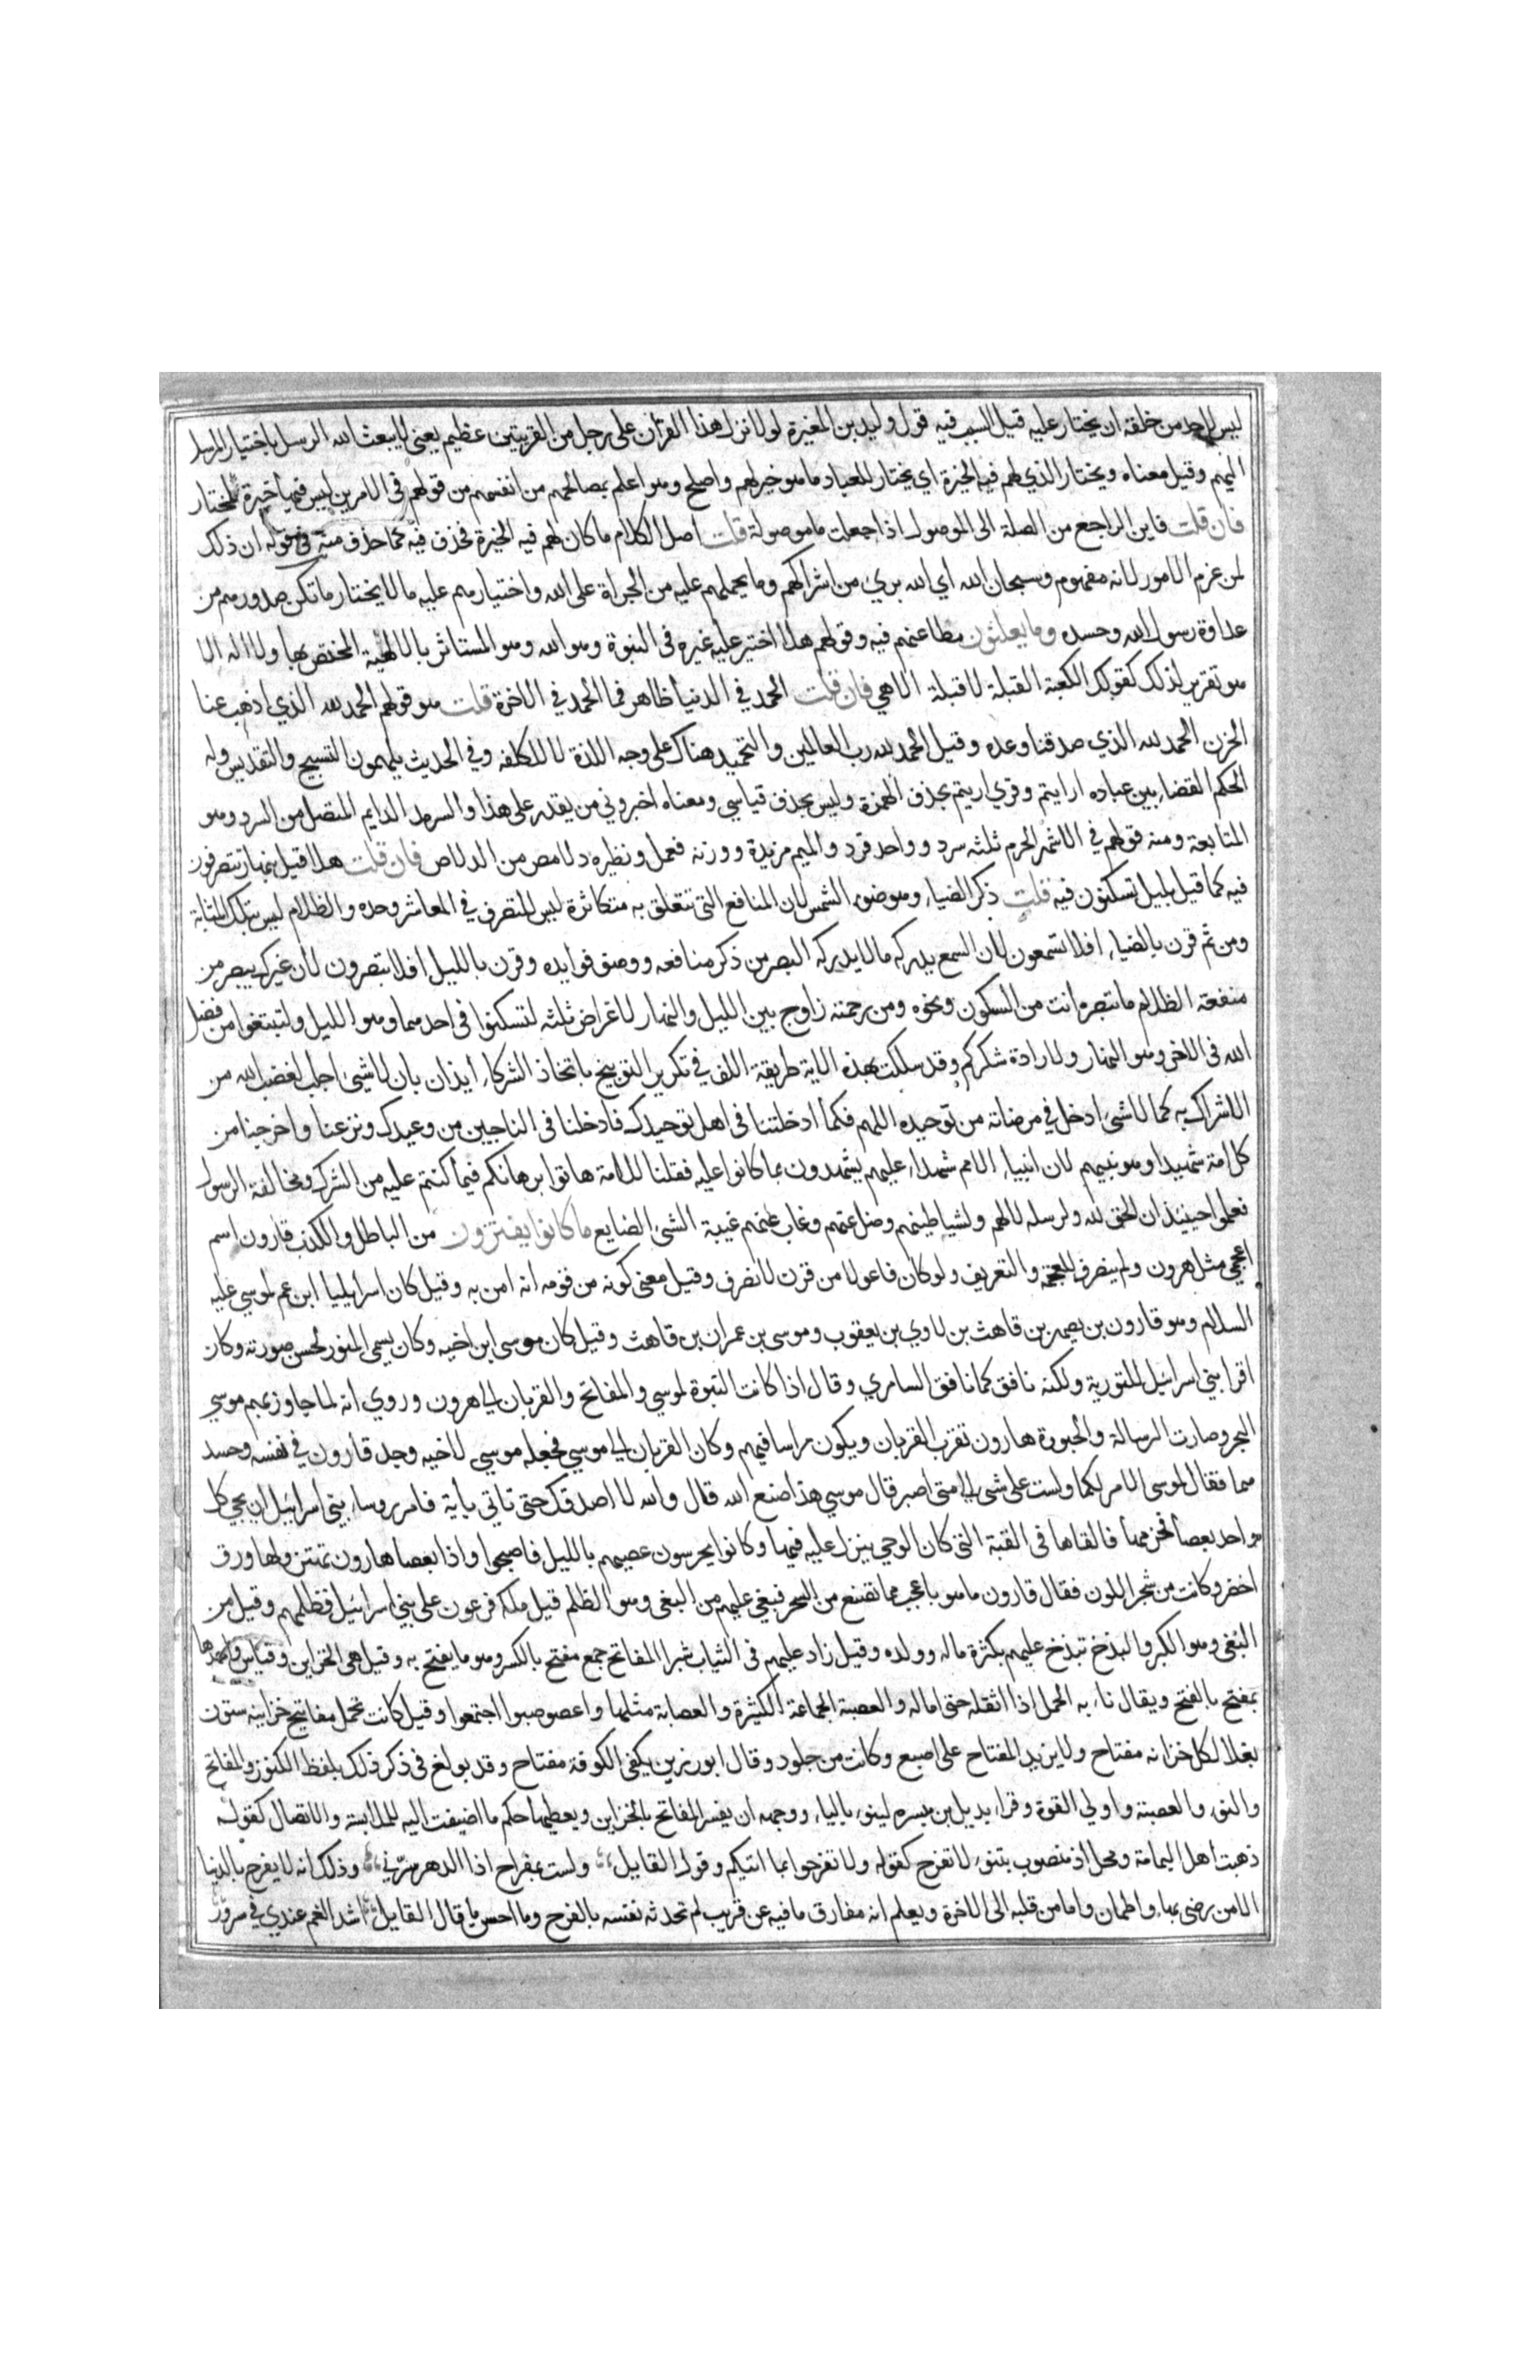 ليس لاحد من خلقه ان يختار عليه قيل السبب فيه قول وليد بن المغيرة لولا نزل هذا القرآن على رجل من القريتين عظيم يعني لا يبعث الله الرسل باختيار المرسل
اليهم وقيل معناه ويختار الذي لهم فيه الخيرة اي يختار للعباد ما هو خير لهم واصلح وهو اعلم بمصالحهم من انفسهم من قولهم في الامرين ليس فيهما خيرة لمختار
فان قلت فاين الراجع من الصلة الى الموصول اذا جعلت ما موصولة قلت اصل الكلام ما كان لهم فيه الخيرة فحذف فيه كما حذف منه في قوله ان ذلك
لمن عزم الامور لانه مفهوم وسبحان الله اي الله بري من اشراكهم وما يحملهم عليه من الجراة على الله واختيارهم عليه ما لا يختار ما تكن صدورهم من
عداوة رسول الله وحسده وما يعلنون مطاعنهم فيه وقولهم هلا اختير عليه غيره في النبوة وهو الله وهو المستاثر بالالهية المختص بها ولا اله الا
هو تقرير لذلك كقولك الكعبة القبلة لا قبلة الا هي فان قلت الحمد في الدنيا ظاهر فما الحمد في الاخرة قلت هو قولهم الحمد لله الذي اذهب عنا
الحزن الحمد لله الذي صدقنا وعده وقيل الحمد لله رب العالمين والتحميد هناك على وجه اللذة لا الكلفه وفي الحديث يلهمون التسبيح والتقديس وله
الحكم القضا بين عباده ارايتم وقري اريتم بحذف الهمزة وليس بحذف قياسي ومعناه اخبروني من يقدر على هذا والسرمد الدايم المتصل من السرد وهو
المتابعة ومنه قولهم في الاشهر الحرم ثلثه سرد وواحد فرد والميم مزيدة ووزنه فعمل ونظيره دلامص من الدلاص فان قلت هلا قيل بنهار تتصرفون
فيه كما قيل بليل تسكنون فيه قلت ذكر الضياء وهو ضوء الشمس لان المنافع التي تتعلق به متكاثرة ليس التصرف في المعاش وحده والظلام ليس بتلك المثابة
ومن ثم قرن بالضياء افلا تسمعون لان السمع يدركه ما لا يدركه البصر من ذكر منافعه ووصف فوايده وقرن بالليل افلا تبصرون لان غيرك يبصر من
منفعة الظلام ما تبصره انت من السكون ونحوه ومن رحمته زاوج بين الليل والنهار لاغراض ثلثه لتسكنوا في احدهما وهو الليل ولتبتغوا من فضل
الله في الاخر وهو النهار ولارادة شكركم وقد سلكت بهذه الاية طريقة اللف في تكرير التوبيخ باتخاذ الشركاء أيذان بان لا شيء اجلب لغضب الله من
الاشراك به كما لا شيء ادخل في مرضاته من توحيده اللهم فكما ادخلتنا في اهل توحيدك فادخلنا في الناجين من وعيدك ونزعنا واخرجنا من
كل امة شهيدا وهو نبيهم لان انبياء الامم شهداء عليهم يشهدون بما كانوا عليه فقلنا للامة هاتوا برهانكم فيما كنتم عليه من الشرك ومخالفة الرسول
فعلموا حينئذ ان الحق لله ولرسله لا لهم ولشياطينهم وضل عنهم وغاب عنهم غيبة الشيء الضايع ما كانوا يفترون من الباطل والكذب قارون اسم
اعجمي مثل هرون ولم ينصرف للعجمة والتعريف ولو كان فاعولا من قرن لانصرف وقيل معنى كونه من قومه انه امن به وقيل كان اسرائيليا ابن عم لموسي عليه
السلام وهو قارون بن يصهر بن قاهث بن لاوي بن يعقوب وموسى بن عمران بن قاهث وقيل كان موسى ابن اخيه وكان يسمى المنور لحسن صورته وكان
اقرا بني اسرائيل للتورية ولكنه نافق كما نافق السامري وقال اذا كانت النبوة لموسي والمفاتح والقربان الي هرون وروي انه لما جاوز بهم موسي
البحر وصارت الرسالة والحبورة هارون تقرب القربان ويكون راسا فيهم وكان القربان الي موسي فجعله موسي لاخيه وجد قارون في نفسه وحسد
هما فقال لموسى الامر لكما ولست على شيء الى متى اصبر قال موسي هذا صنع الله قال والله لا اصدقك حتى تاتي باية فامر روساء بني اسرائيل ان يجي كل
واحد بعصا فحزمها فالقاها في القبة التي كان الوحي ينزل عليه فيها وكانوا يحرسون عصيهم بالليل فاصبحوا واذا بعصا هارون تهتز ولها ورق
اخضر وكانت من شجر اللوز فقال قارون ما هو باعجب مما تصنع من السحر فبغي عليهم من البغي وهو الظلم قيل ملكه فرعون على بني اسرائيل فظلمهم وقيل من
البغي وهو الكبر والبذخ تبذخ عليهم بكثرة ماله وولده وقيل زاد عليهم في الثياب شبرا المفاتح جمع مفتح بالكسر وهو ما يفتح به وقيل هي الخزاين وقياس واحدها
مفتح بالفتح ويقال ناء به الحمل اذا اثقله حتى اماله والعصبة الجماعة الكثيرة والعصابة مثلها واعصوصبوا اجتمعوا وقيل كانت تحمل مفاتيح خزاينه ستون
بغلا لكل خزانه مفتاح ولا يزيد المفتاح على اصبع وكانت من جلود وقال ابو رزين يكفي الكوفة مفتاح وقد بولغ في ذكر ذلك بلفظ الكنوز والمفاتح
والنوء والعصبة واولي القوة وقراء بديل بن ميسره لينوء بالياء ووجهه ان يفسر المفاتح بالخزاين ويعطيها حكم ما اضيفت اليه للملابسة والاتصال كقولك
ذهبت أهل اليمامة ومحل اذ منصوب بتنوء لا تفرح كقوله ولا تفرحوا بما اتيكم وقول القايل ولست بمفراح اذا الدهر سرني وذلك انه لا يفرح بالدنيا
الا من رضي بها واطمان واما من قلبه الى الاخرة ويعلم انه مفارق ما فيه عن قريب لم تحدثه نفسه بالفرح وما احسن ما قال القايل اشد الغم عندي في سرور